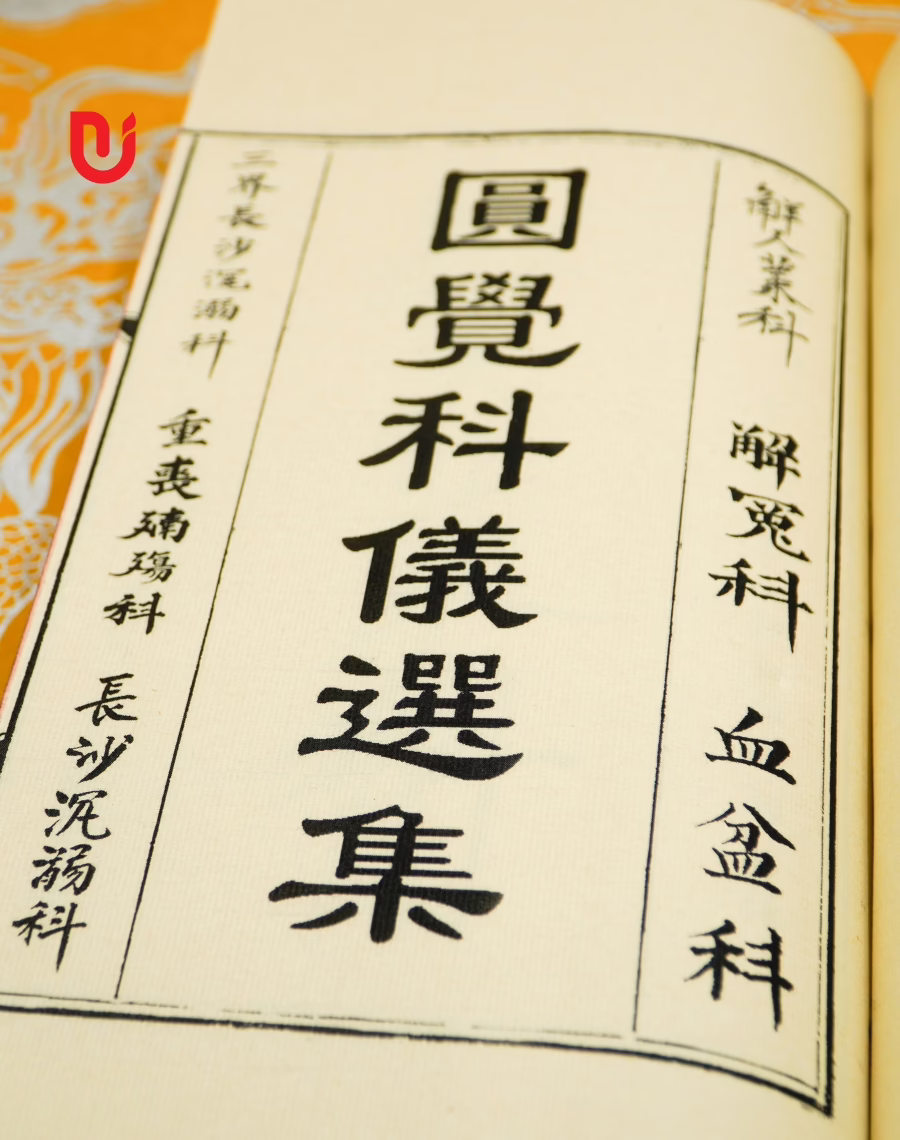 解人葉科 解冤科 血盆科
圓覺科儀選集
三界長沙沉溺科 重喪殃殤科 長沙沉溺科